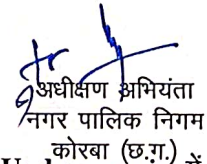 अधीक्षण अभियंता
नगर पालिक निगम
कोरबा (छ.ग.)